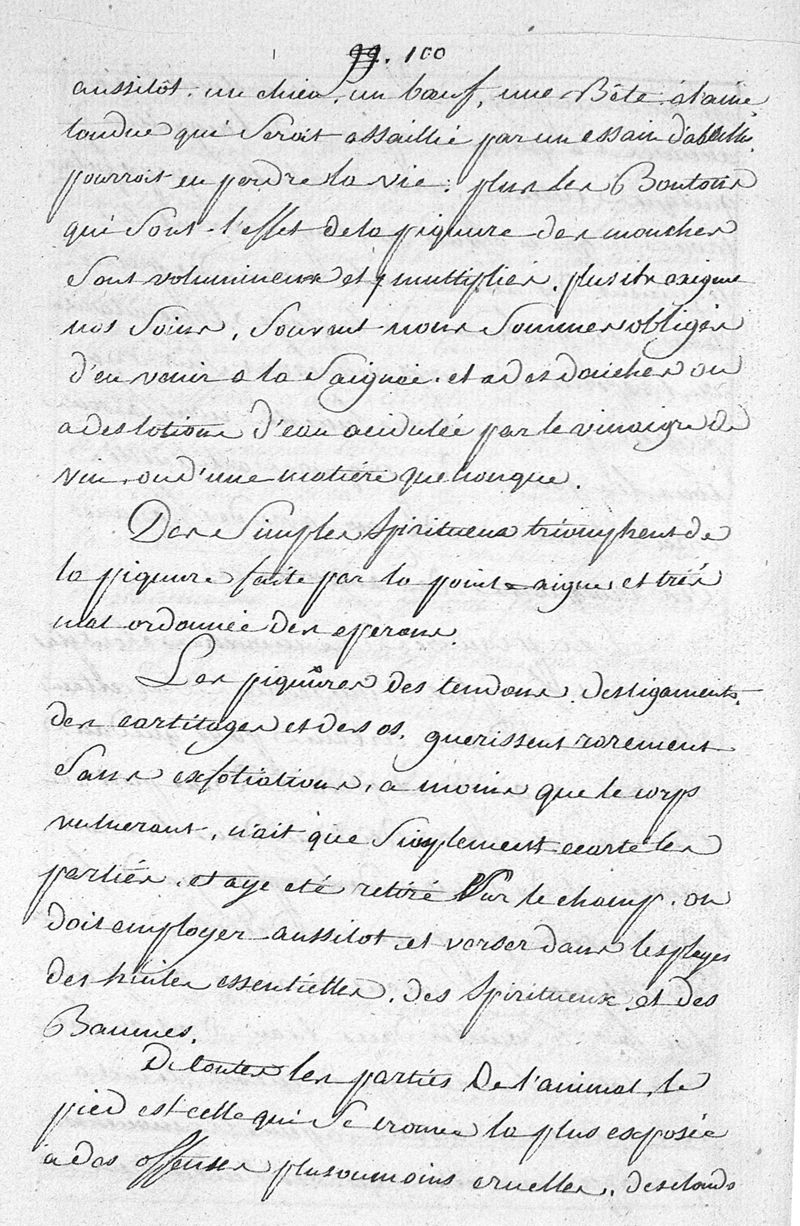 99. 100
aussitôt. un chien, un bœuf, une Bête à laine
tondue qui Seroit assaillie par un essain d'abeilles
pourroit en perdre la vie. plus les Boutons
qui Sont l'effet de la piquure des mouches
Sont volumineux et multipliés, plus ils exigent
nos Soins, Souvent nous Sommes obligés
d'en venir a la Saignée. et a des douches ou
a des lotions d'eau acidulée par le vinaigre de
vin, ou d'une matière quelconque.
Des Simples Spiritueux triomphent de
la piquure faite par la pointe aigue et très
mal ordonnée des eperons
Les piquûres des tendons, des ligaments,
des cartilages et des os, guerissent rarement
Sans exfoliations, a moins que le corps
vulnerant, n'ait que Simplement ecarté les
parties, et aye eté retiré Sur le champ. on
doit employer aussitot, et verser dans les playes
des huiles essentielles, des Spiritueux et des
Baumes.
De toutes les parties De l'animal, le
pied est celle qui Se trouve la plus exposée
à des offenses plus ou moins cruelles, des clouds